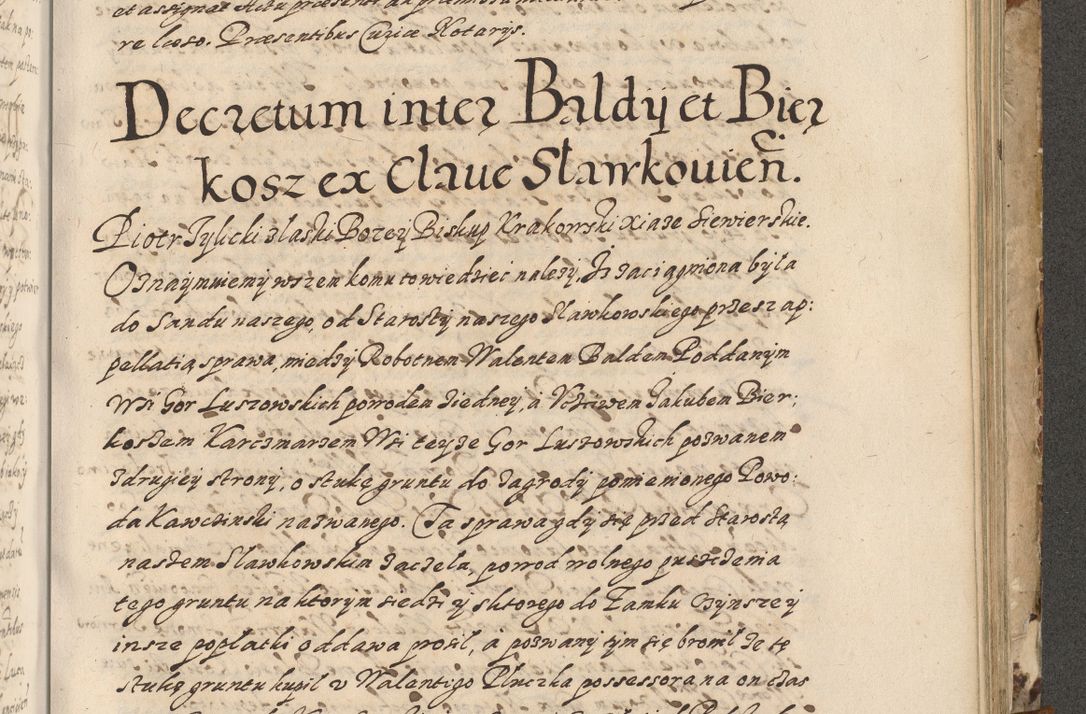 re loco. Præsentibus Curiæ Notarijs.
Decretum inter Baldij et Bier
kosz ex Claue Sławkouień.
Piotr Tylicki z łaski Bozey Biskup Krakowski Xiąze Siewierskie.
Oznaymuiemy wszem komu to wiedzieć nalezy, Iz zaciągniona była
do Sandu naszego, od Starosty naszego Sławkowskiego przesz ap:
pellatią sprawa, miedzy Robotnem Walentem Baldem Poddanym
Wsi Gor Luszowskich powodem z iedney, a Vcziwem Jakubem Bier:
koszem Karczmarzem Wsi teyze Gor Luszowskich pozwanem
z drugiey strony, o stukę gruntu do zagrody pomienionego Powo:
da Kawczinski nazwanego. Ta sprawa gdy się przed Starostą
naszem Sławkowskim zaczela, powod wolnego puszczenia
tego gruntu na ktorym siedzi y sktorego do Zamku czynsze y
insze popłatki oddawa prosił, a pozwany tym się bronił ze tę
stukę gruntu kupił v Walentigo Płuczka possessora na on czas